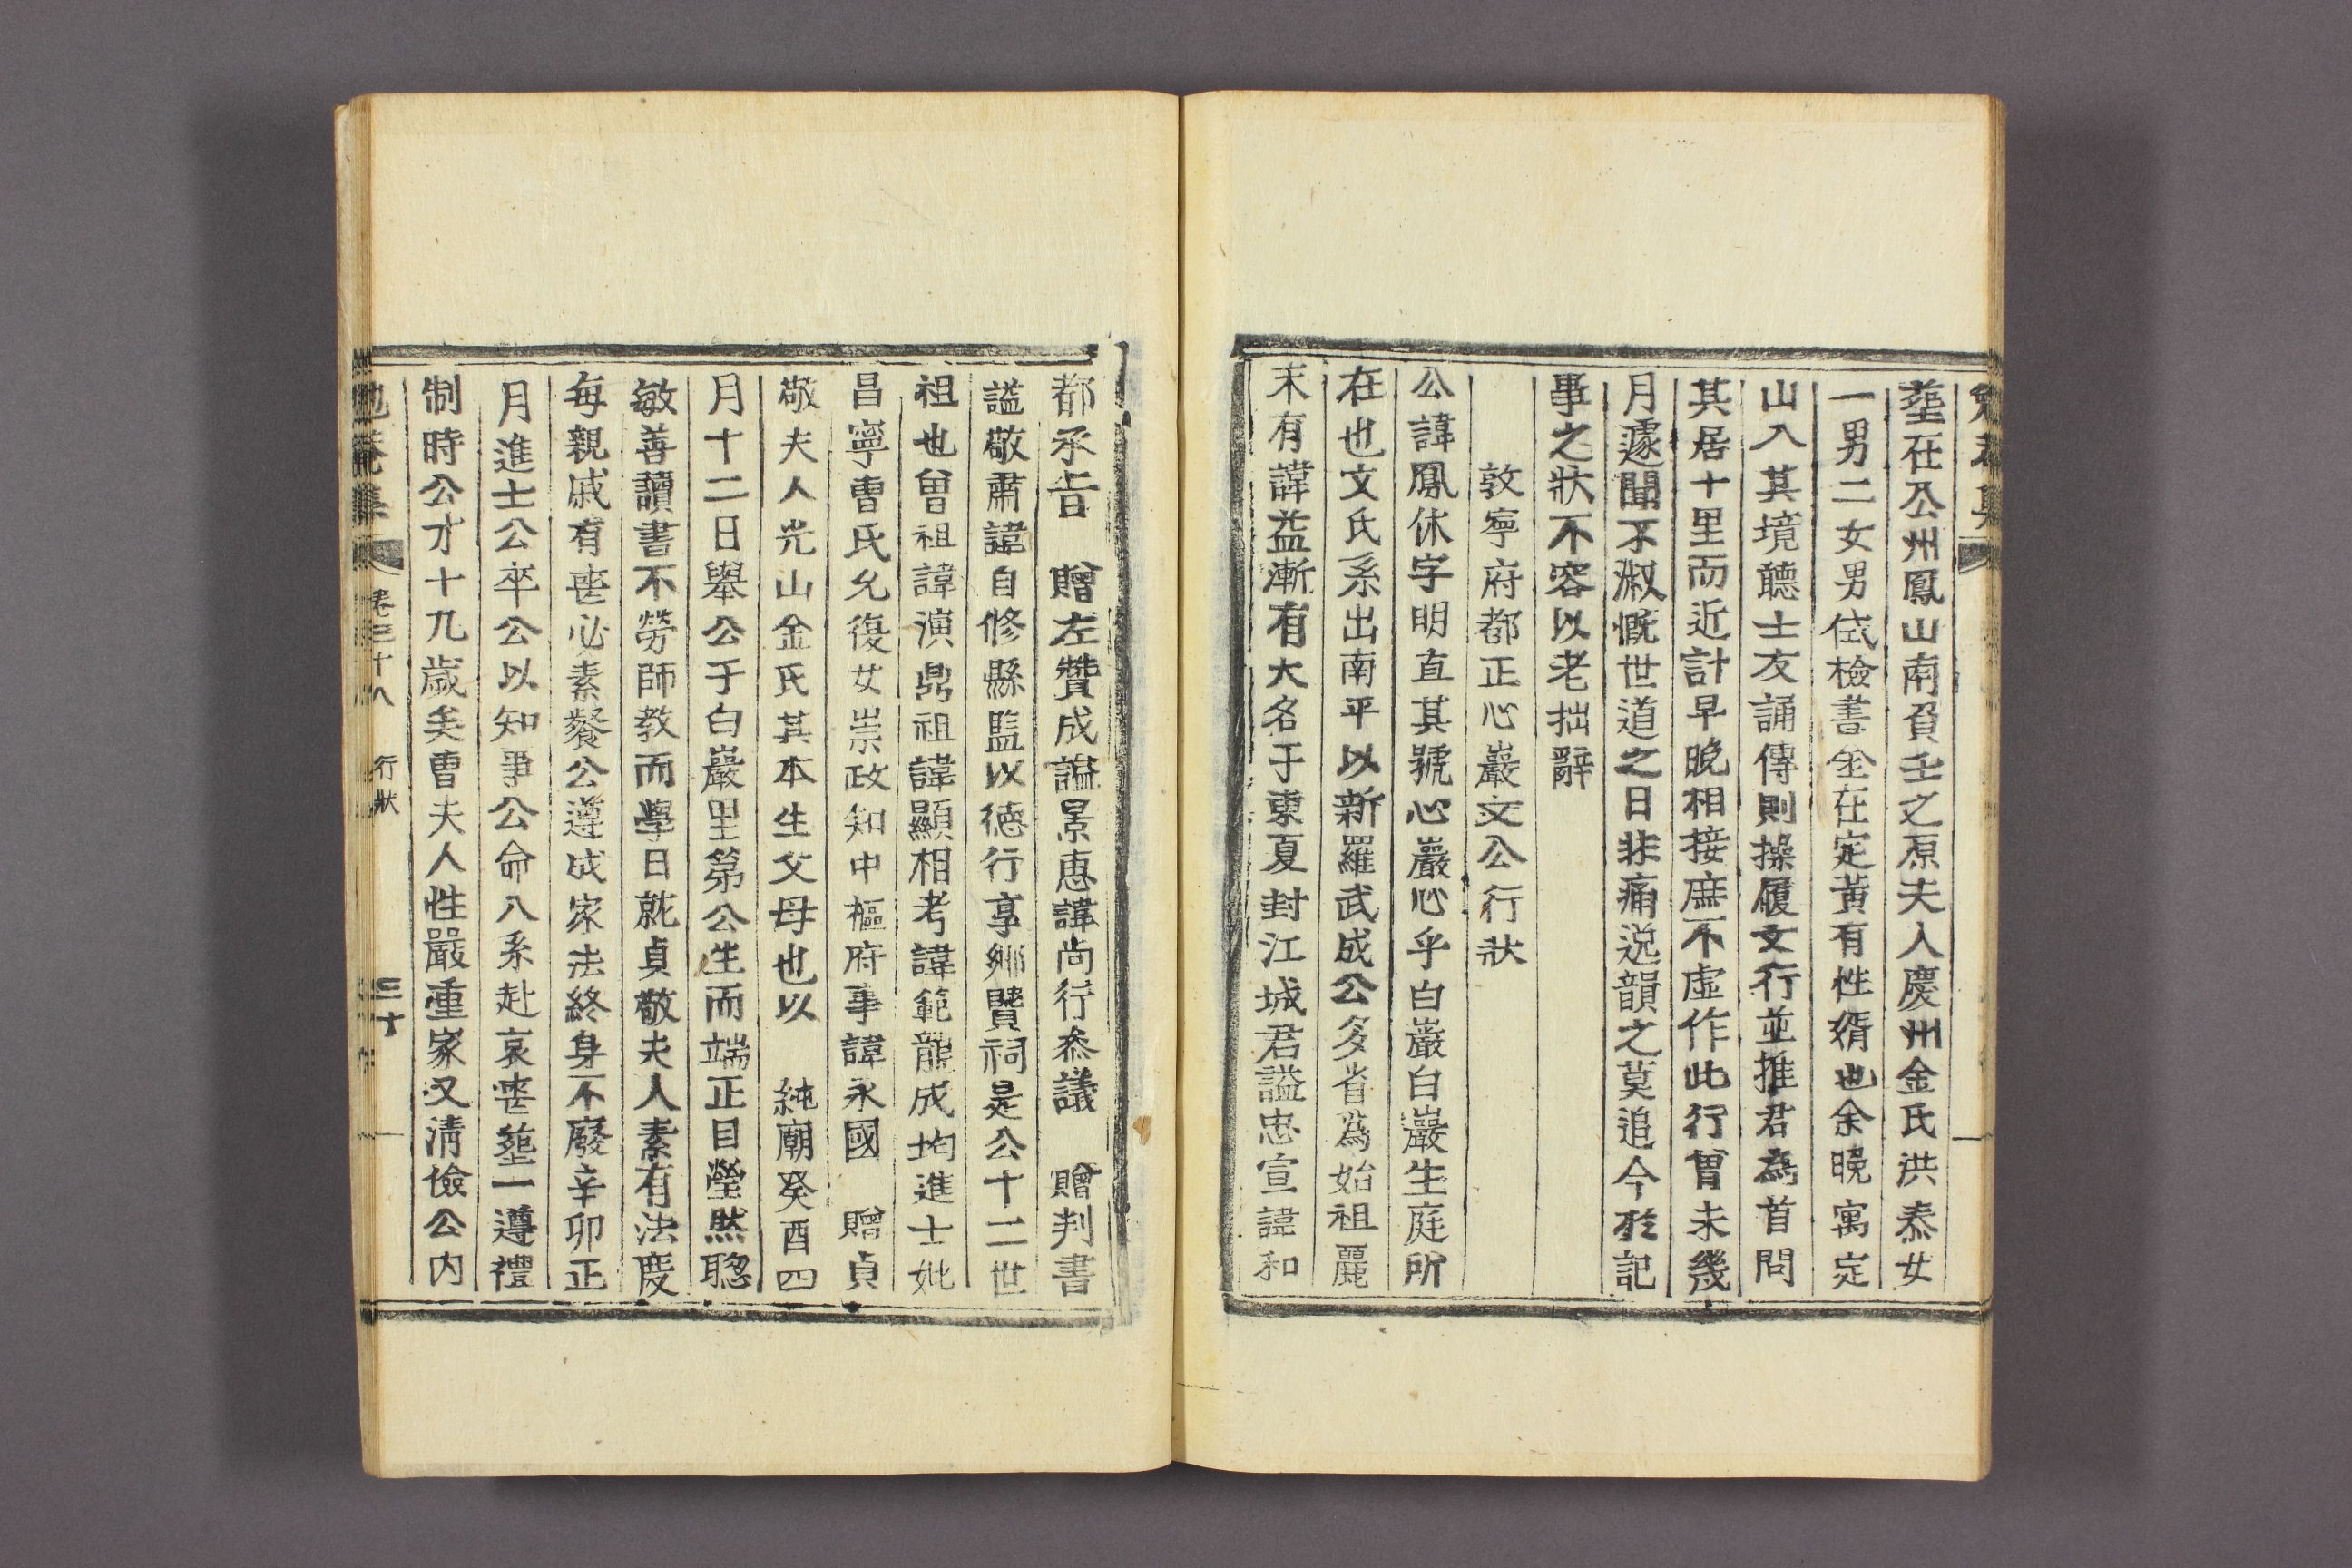 葬在公州鳳山南負壬之原夫人慶州金氏洪泰女
一男二女男佉檢書金在定黃有性壻也余晚寓定
山入其境聽士友誦傳則操履文行並推君爲首問
其居十里而近計早晚相接庶不虛作此行曾未幾
月遽聞不淑慨世道之日非痛逸韻之莫追今於記
事之狀不容以老拙辭
敦寧府都正心巖文公行狀
公諱鳳休字明直其號心巖心乎白巖白巖生庭所
在也文氏系出南平以新羅武成公多省爲始祖麗
末有諱益漸有大名于東夏封江城君謚忠宣諱和
都承旨 贈左贊成謚景惠諱尚行叅議 贈判書
謚敬肅諱自修縣監以德行享鄕賢祠是公十二世
祖也曾祖諱演鼎祖諱顯相考諱範龍成均進士妣
昌寧曺氏允復女崇政知中樞府事諱永國 贈貞
敬夫人光山金氏其本生父母也以 純廟癸酉四
月十二日舉公于白巖里第公生而端正目瑩然聰
敏善讀書不勞師教而學日就貞敬夫人素有法度
每親戚有喪必素餐公遵成家法終身不廢辛卯正
月進士公卒公以知事公命入系赴哀喪葬一遵禮
制時公才十九歲矣曺夫人性嚴重家又淸儉公內
卷三十八 行狀 三十